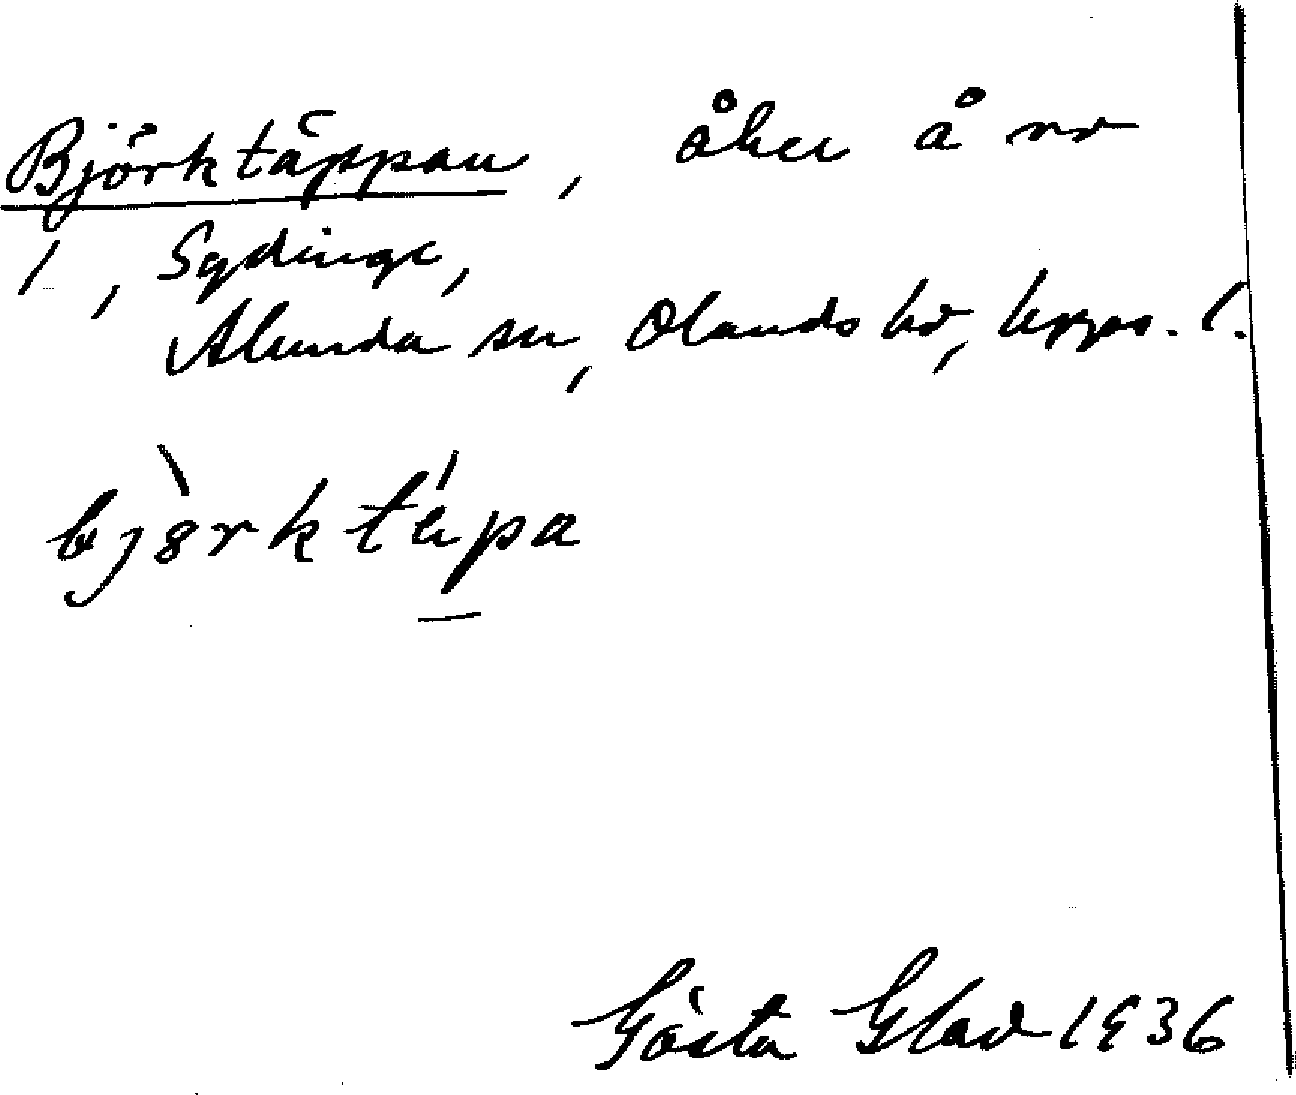 Björktäppan, åker å nr
1, Sydinge,
Alunda sn, Olands hd, Upps. l.
bjòrktépa
Gösta Glad 1936